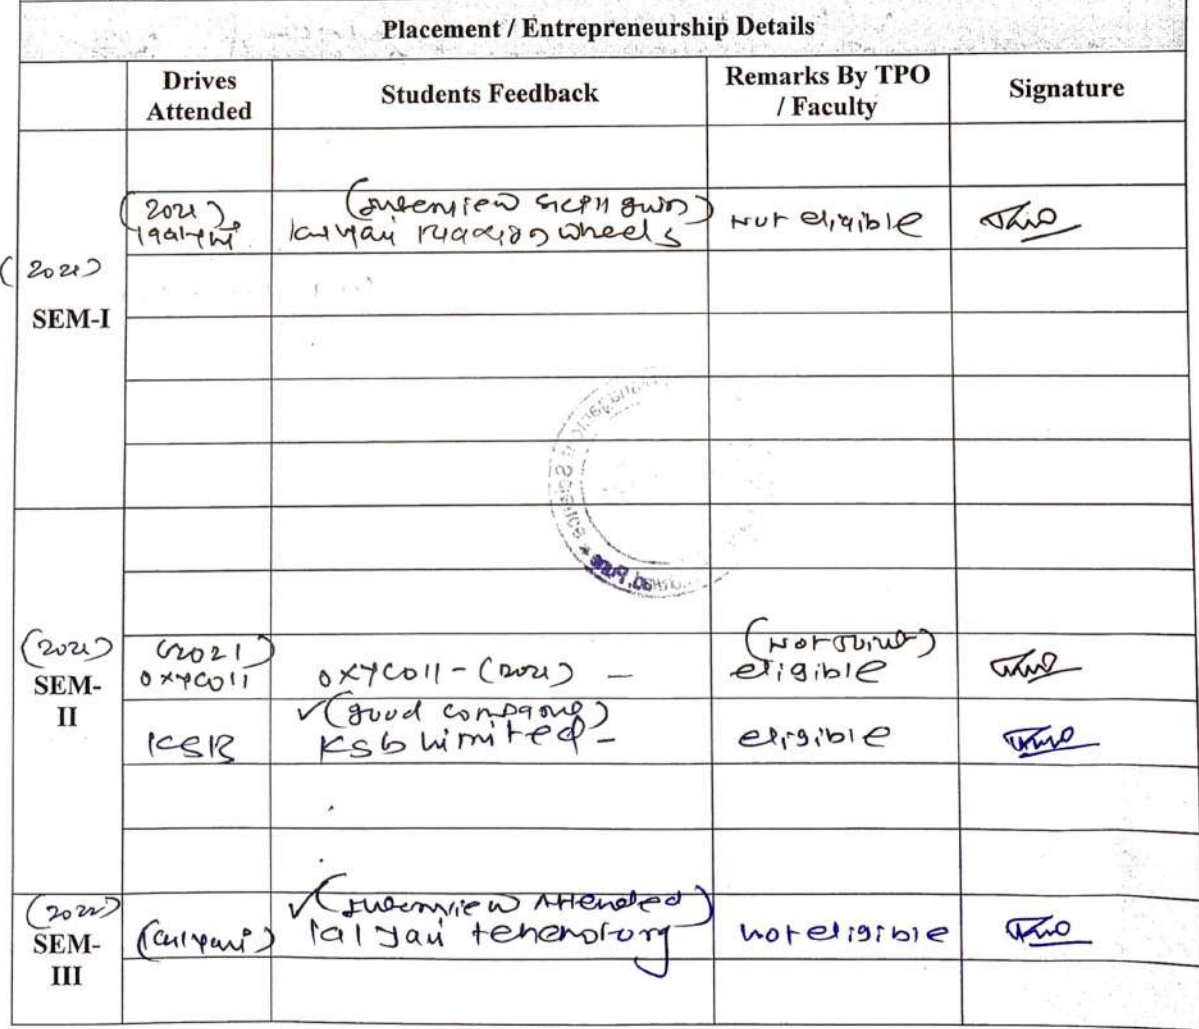 Placement / Entrepreneurship Details
Drives Attended
Students Feedback
Remarks By TPO / Faculty
Signature
(2021)
SEM-I
(2021)
(Interview given)
wheels
Not eligible
(2021)
SEM-II
(2021)
oxycoll
oxycoll-(2021) -
(Not
eligible
KSB
✓(good company)
Ksb Limited-
eligible
Science * 
Pune
(2022)
SEM-III
(Calyani)
✓(Interview Attended)
not eligible